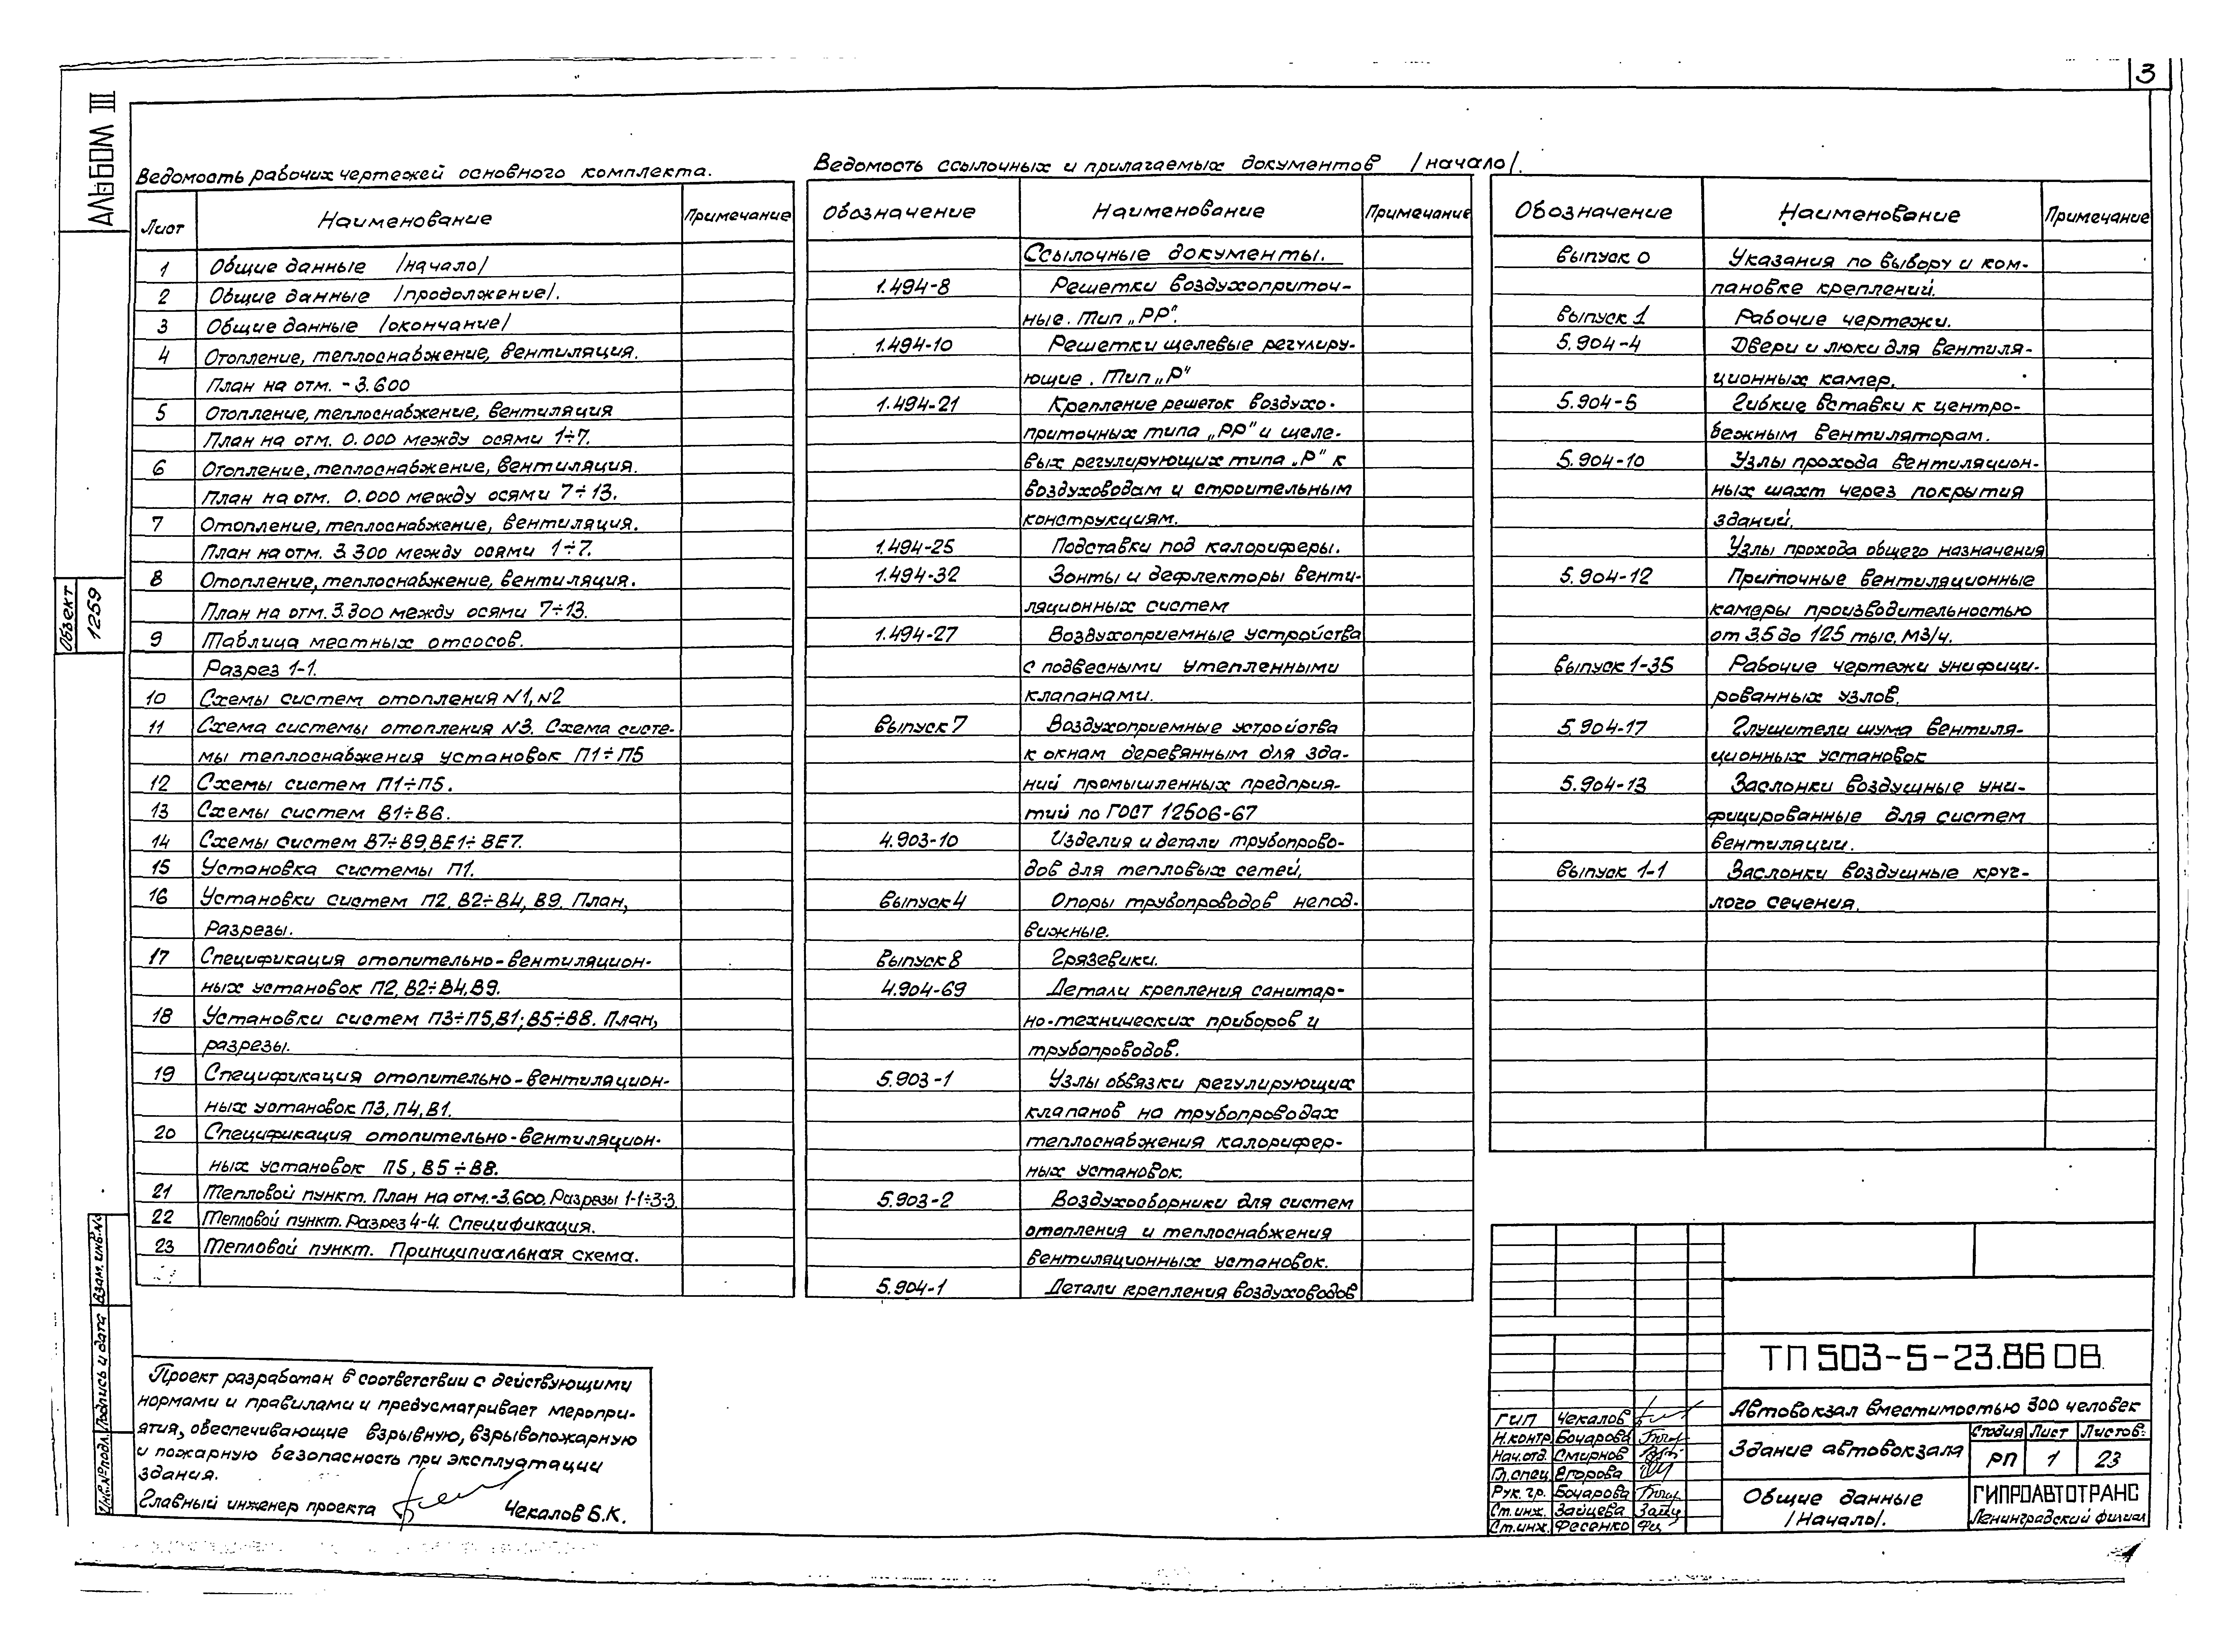 3
АЛЬБОМ III
Ведомость рабочих чертежей основного комплекта.
Лист Наименование Примечание
1 Общие данные /начало/
2 Общие данные /продолжение/.
3 Общие данные /окончание/
4 Отопление, теплоснабжение, вентиляция.
План на отм. -3.600
5 Отопление, теплоснабжение, вентиляция
План на отм. 0.000 между осями 1÷7.
6 Отопление, теплоснабжение, вентиляция.
План на отм. 0.000 между осями 7÷13.
7 Отопление, теплоснабжение, вентиляция.
План на отм. 3.300 между осями 1÷7.
8 Отопление, теплоснабжение, вентиляция.
План на отм. 3.300 между осями 7÷13.
9 Таблица местных отсосов.
Разрез 1-1.
10 Схемы систем отопления N1, N2
11 Схема системы отопления N3. Схема систе-
мы теплоснабжения установок П1÷П5
12 Схемы систем П1÷П5.
13 Схемы систем В1÷В6.
14 Схемы систем В7÷В9, ВЕ1÷ВЕ7.
15 Установка системы П1.
16 Установки систем П2, В2÷В4, В9. План,
Разрезы.
17 Спецификация отопительно-вентиляцион-
ных установок П2, В2÷В4, В9.
18 Установки систем П3÷П5, В1; В5÷В8. План,
разрезы.
19 Спецификация отопительно-вентиляцион-
ных установок П3, П4, В1.
20 Спецификация отопительно-вентиляцион-
ных установок П5, В5÷В8.
21 Тепловой пункт. План на отм.-3.600. Разрезы 1-1÷3-3.
22 Тепловой пункт. Разрез 4-4. Спецификация.
23 Тепловой пункт. Принципиальная схема.
Ведомость ссылочных и прилагаемых документов /начало/.
Обозначение Наименование Примечание
Ссылочные документы.
1.494-8 Решетки воздухоприточ-
ные. Тип „РР".
1.494-10 Решетки щелевые регулиру-
ющие. Тип „Р"
1.494-21 Крепление решеток воздухо-
приточных типа „РР" и щеле-
вых регулирующих типа „Р" к
воздуховодам и строительным
конструкциям.
1.494-25 Подставки под калориферы.
1.494-32 Зонты и дефлекторы венти-
ляционных систем
1.494-27 Воздухоприемные устройства
с подвесными утепленными
клапанами.
Выпуск 7 Воздухоприемные устройства
к окнам деревянным для зда-
ний промышленных предприя-
тий по ГОСТ 12506-67
4.903-10 Изделия и детали трубопрово-
дов для тепловых сетей,
Выпуск 4 Опоры трубопроводов непод-
вижные.
Выпуск 8 Грязевики.
4.904-69 Детали крепления санитар-
но-технических приборов и
трубопроводов.
5.903-1 Узлы обвязки регулирующих
клапанов на трубопроводах
теплоснабжения калорифер-
ных установок.
5.903-2 Воздухосборники для систем
отопления и теплоснабжения
вентиляционных установок.
5.904-1 Детали крепления воздуховодов
Обозначение Наименование Примечание
Выпуск 0 Указания по выбору и ком-
пановке креплений.
Выпуск 1 Рабочие чертежи.
5.904-4 Двери и люки для вентиля-
ционных камер.
5.904-5 Гибкие вставки к центро-
бежным вентиляторам.
5.904-10 Узлы прохода вентиляцион-
ных шахт через покрытия
зданий.
Узлы прохода общего назначения
5.904-12 Приточные вентиляционные
камеры производительностью
от 3.5 до 125 тыс. м3/ч.
Выпуск 1-35 Рабочие чертежи унифици-
рованных узлов.
5.904-17 Глушители шума вентиля-
ционных установок
5.904-13 Заслонки воздушные уни-
фицированные для систем
вентиляции.
Выпуск 1-1 Заслонки воздушные круг-
лого сечения.
Объект
1259
Взам. инв.№
Подпись и дата
Инв.№подл.
Проект разработан в соответствии с действующими
нормами и правилами и предусматривает меропри-
ятия, обеспечивающие взрывную, взрывопожарную
и пожарную безопасность при эксплуатации
здания.
Главный инженер проекта Чекалов Б.К.
ТП 503-5-23.86 ОВ
Автовокзал вместимостью 300 человек
ГИП Чекалов
Н.контр. Бочарова
Нач.отд. Смирнов
Гл.спец. Егорова
Рук.гр. Бочарова
Ст.инж. Зайцева
Ст.инж. Фесенко
Здание автовокзала
Стадия Лист Листов
РП 1 23
Общие данные
/Начало/.
ГИПРОАВТОТРАНС
Ленинградский филиал